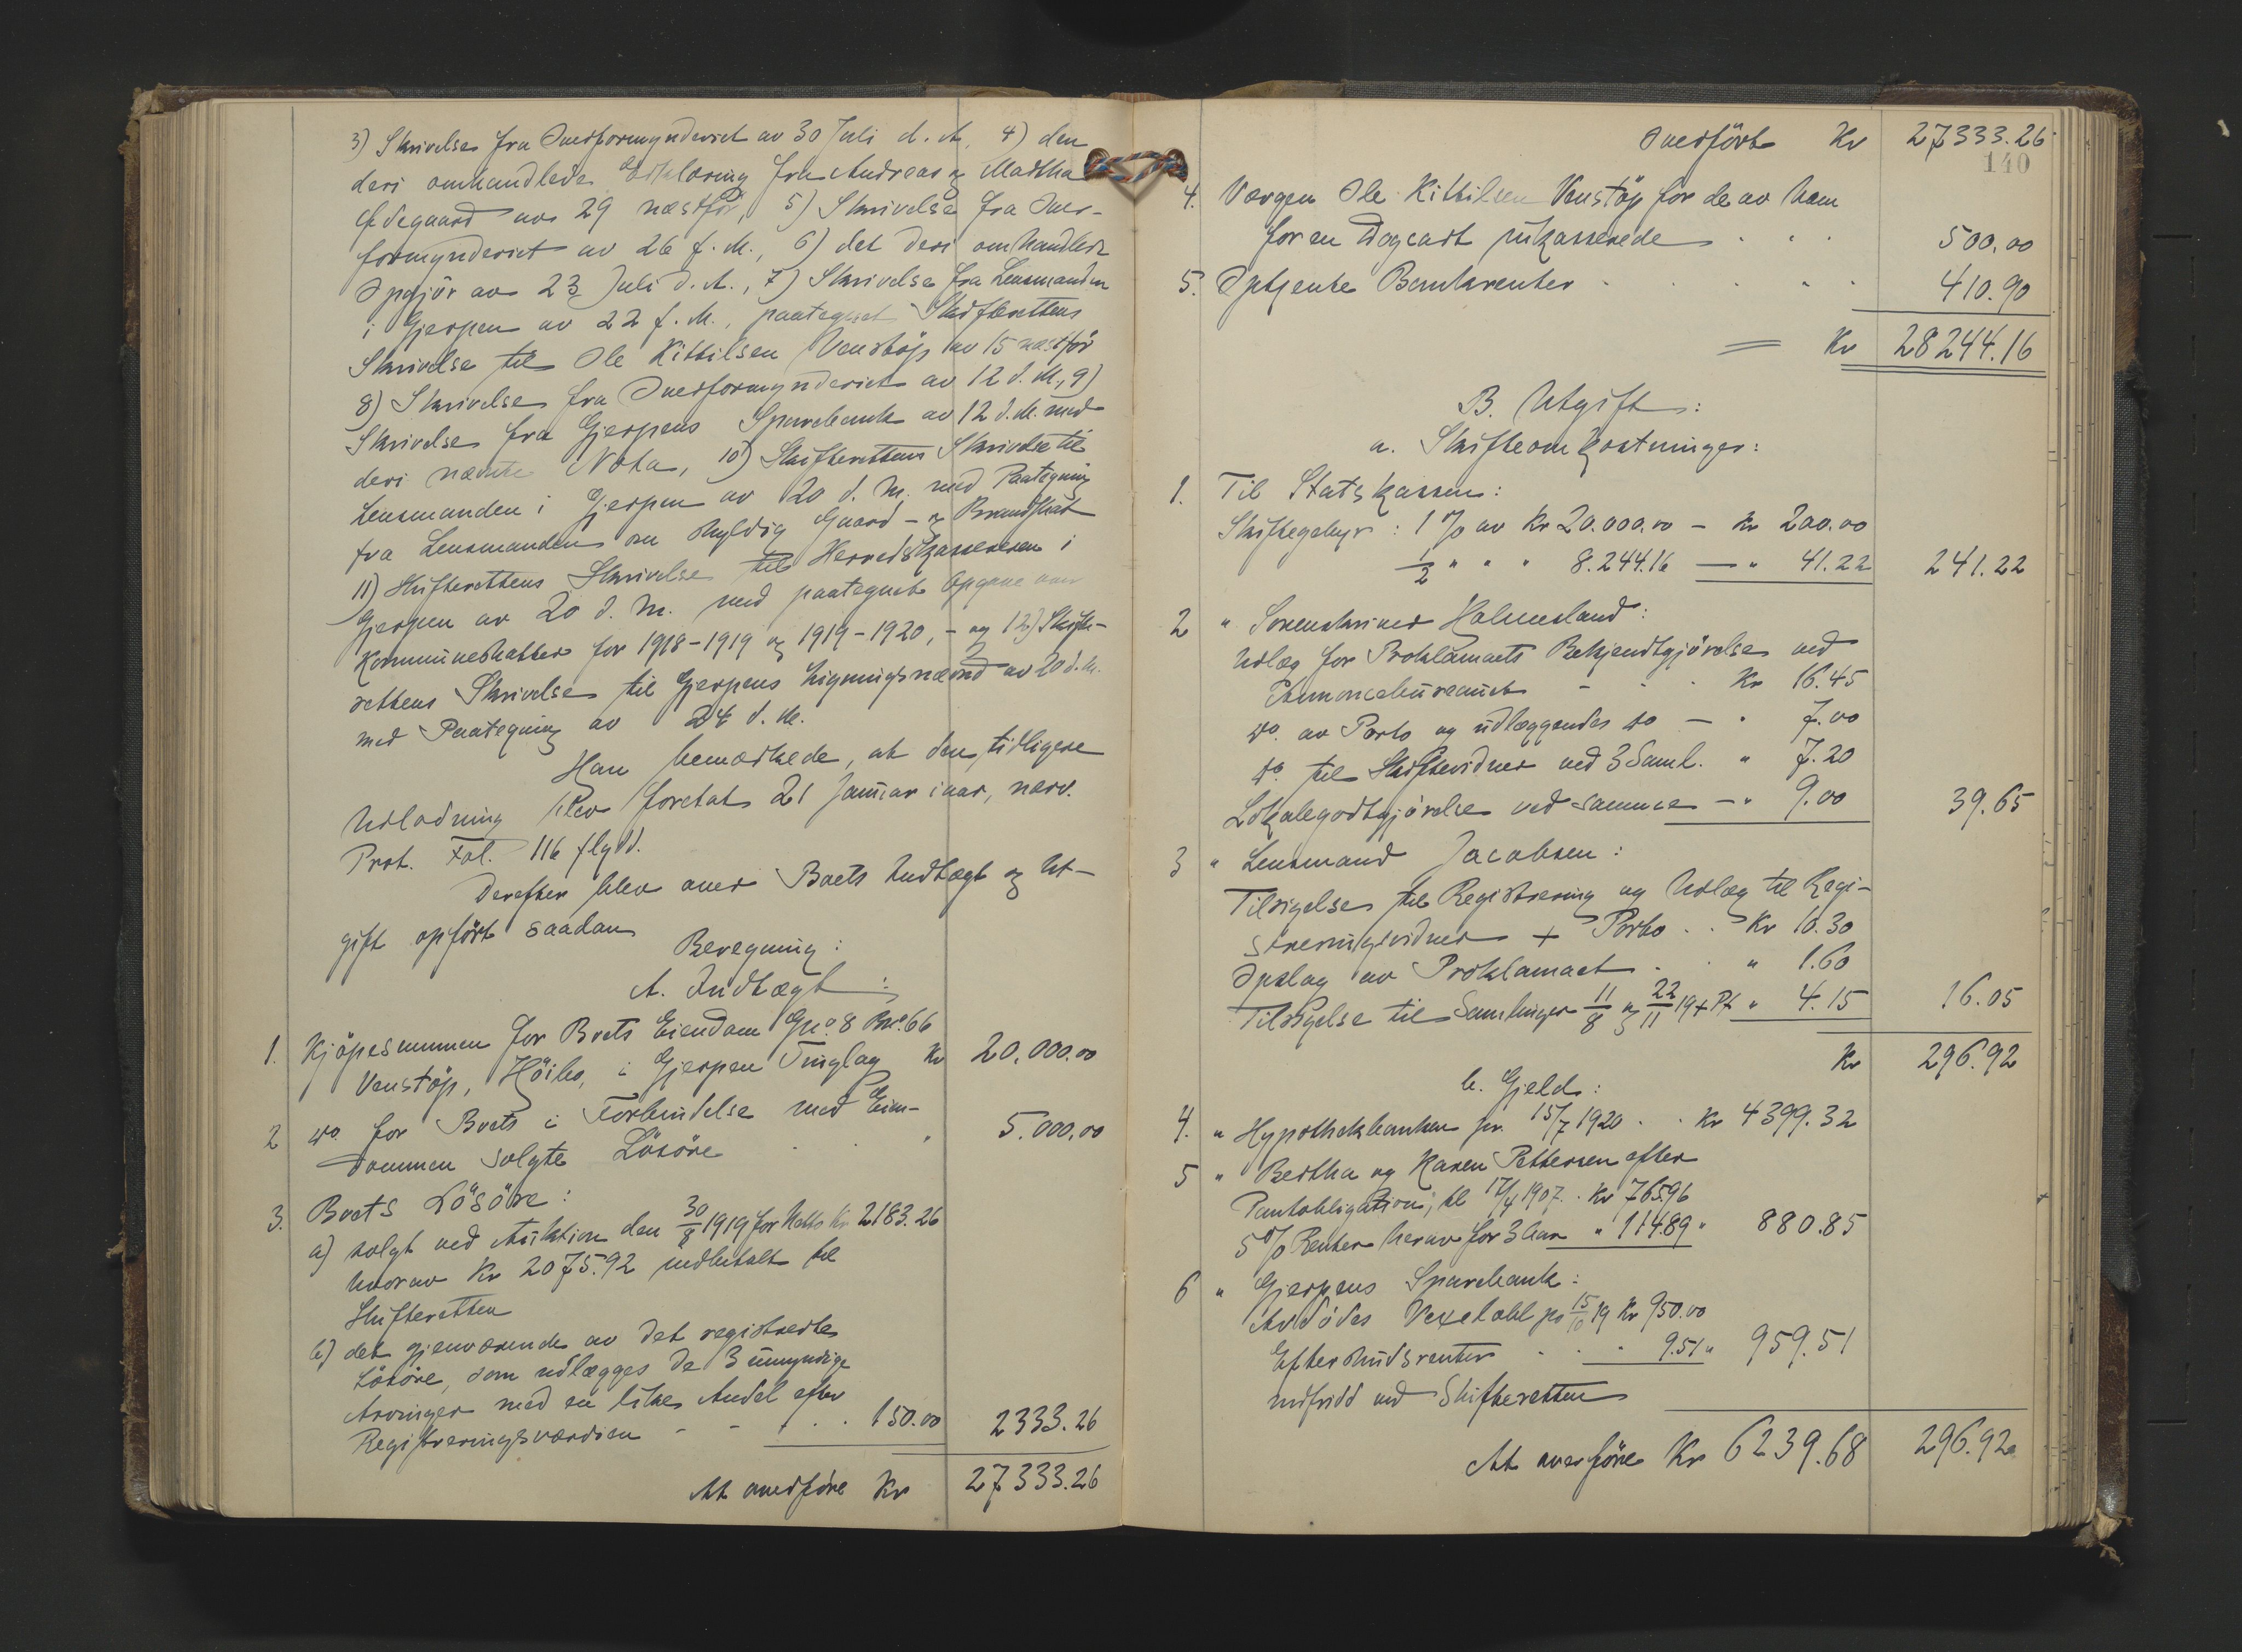 3) Skrivelse fra Overformynderiet av 30 Juli d. A., 4) den
deri omhandlede Erklæring fra Andreas og Martha
Ødegaard av 29 næstfør, 5) Skrivelse fra Over-
formynderiet av 26 f. M., 6) det deri omhandlede
Opgjør av 23 Juli d. A., 7) Skrivelse fra Lensmanden
i Gjerpen av 22 f. M., paategnet Skifterettens
Skrivelse til Ole Kittilsen Venstøp av 15 næstfør
8) Skrivelse fra Overformynderiet av 12 d. M., 9)
Skrivelse fra Gjerpens Sparebank av 12 d. M. med
deri nævnte Nota, 10) Skifterettens Skrivelse til
Lensmanden i Gjerpen av 20 d. M. med Paategning
fra Lensmanden om skyldig Gaard- og Brandskat
11) Skifterettens Skrivelse til Herredskassereren i
Gjerpen av 20 d. M. med paategnet Opgave over
Kommuneskatter for 1918-1919 og 1919-1920, - og 12) Skifte-
rettens Skrivelse til Gjerpens Ligningsnævnd av 20 d. M.
med Paategning av 24 d. M.
Han bemærkede, at den tidligere
Utlodning blev foretat 21 Januar iaar, nærv.
Prot. Fol. 116 flgd.
Derefter blev over Boets Indtægt og Ut-
gift opført saadan
Beregning:
A. Indtægt:
1. Kjøpesummen for Boets Eiendom Gno. 8 Bno. 66
Venstøp, Høibo, i Gjerpen Tinglag Kr 20.000.00
2 do. for Boets i Forbindelse med Eien-
dommen solgte Løsøre " 5.000.00
3. Boets Løsøre:
a) solgt ved Auktion den 30/8 1919 for Netto Kr 2183.26
hvorav Kr 2075.92 indbetalt til
Skifteretten
b) det gjenværende av det registrerte
Løsøre, som utlægges de 3 umyndige
Arvinger med en like Andel efter
Registreringsværdien - - . . 150.00 2333.26
At overføre Kr 27333.26
Overført Kr 27333.26
140
4. Værgen Ole Kittilsen Venstøp for de av ham
for en Dogcart inkasserede . . . 500.00
5. Optjente Bankrenter . . . . . 410.90
= Kr 28244.16
B. Utgift:
a. Skifteomkostninger:
1. Til Statskassen:
Skiftegebyr: 1 % av Kr 20.000.00 - Kr 200.00
1/2 " " " 8.244.16 - " 41.22 241.22
2 " Sorenskriver Holmesland:
Utlæg for Proklamaets Bekjendtgjørelse ved
Annoncebureauet - . . Kr 16.45
do. av Porto og utlæggendes do - " 7.00
do. til Skiftevidner ved 3 Saml. " 7.20
Lokalegodtgjørelse ved samme - " 9.00 39.65
3 " Lensmand Jacobsen:
Tilsigelse til Registrering og Utlæg til Regi-
streringsvidner + Porto . . Kr 10.30
Opslag av Proklamaet . . " 1.60
Tilsigelse til Samlinger 11/8 og 22/11 19 + Pt " 4.15 16.05
Kr 296.92
b. Gjeld:
4. " Hypothekbanken pr. 15/7 1920 . . Kr 4399.32
5 " Bertha og Karen Pettersen efter
Pantobligation, tl 17/4 1907 . Kr 765.96
5 % Renter herav for 3 Aar " 114.89 " 880.85
6 " Gjerpens Sparebank:
Avdødes Vexelobl pr 15/10 19 Kr 950.00
Efterskudsrenter . . . 9.51 " 959.51
indfridd ved Skifteretten
At overføre Kr 6239.68 296.92